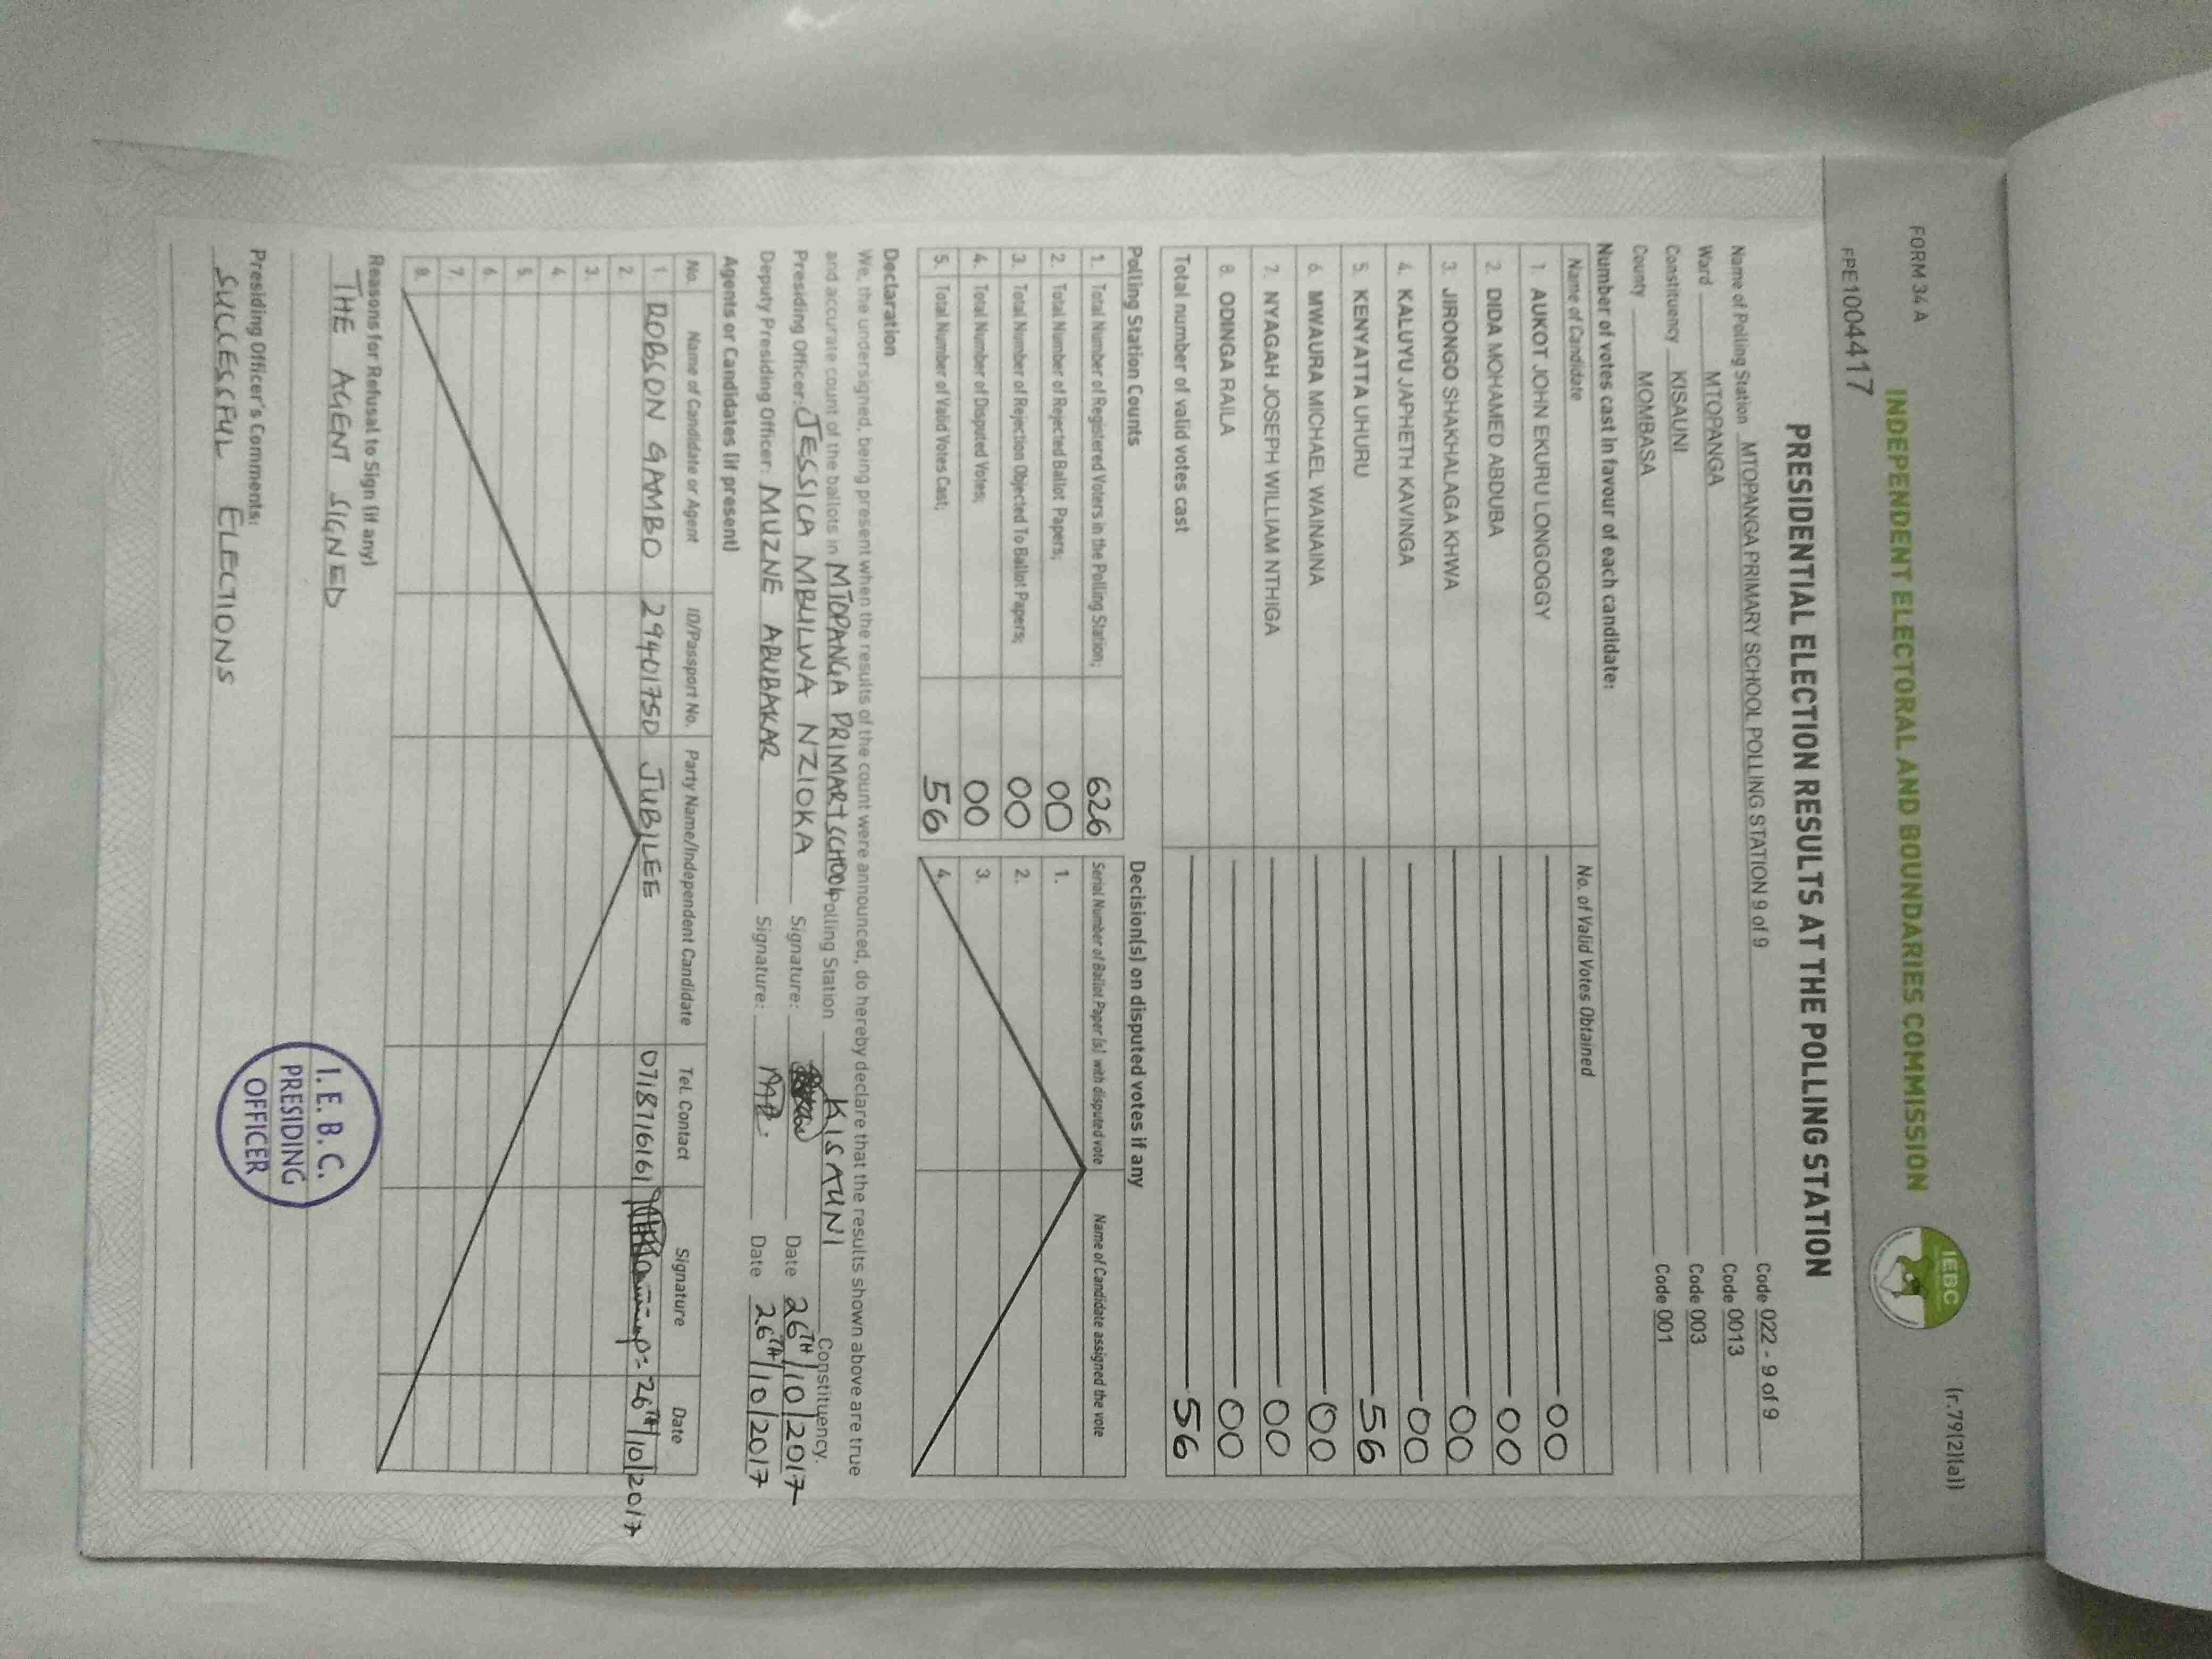 FORM 34 A
(r.79(2)(a))
INDEPENDENT ELECTORAL AND BOUNDARIES COMMISSION
IEBC
FPE1004417
PRESIDENTIAL ELECTION RESULTS AT THE POLLING STATION
Name of Polling Station MTOPANGA PRIMARY SCHOOL POLLING STATION 9 of 9 Code 022 - 9 of 9
Ward MTOPANGA Code 0013
Constituency KISAUNI Code 003
County MOMBASA Code 001
Number of votes cast in favour of each candidate:
Name of Candidate No. of Valid Votes Obtained
1. AUKOT JOHN EKURU LONGOGGY 00
2. DIDA MOHAMED ABDUBA 00
3. JIRONGO SHAKHALAGA KHWA 00
4. KALUYU JAPHETH KAVINGA 00
5. KENYATTA UHURU 56
6. MWAURA MICHAEL WAINAINA 00
7. NYAGAH JOSEPH WILLIAM NTHIGA 00
8. ODINGA RAILA 00
Total number of valid votes cast 56
Polling Station Counts
1. Total Number of Registered Voters in the Polling Station; 626
2. Total Number of Rejected Ballot Papers; 00
3. Total Number of Rejection Objected To Ballot Papers; 00
4. Total Number of Disputed Votes; 00
5. Total Number of Valid Votes Cast; 56
Decision(s) on disputed votes if any
Serial Number of Ballot Paper (s) with disputed vote Name of Candidate assigned the vote
1.
2.
3.
4.
Declaration
We, the undersigned, being present when the results of the count were announced, do hereby declare that the results shown above are true
and accurate count of the ballots in MTOPANGA PRIMARY SCHOOL Polling Station KISAUNI Constituency.
Presiding Officer: JESSICA MBULWA NZIOKA Signature: Date 26TH/10/2017
Deputy Presiding Officer: MUZNE ABUBAKAR Signature: Date 26TH/10/2017
Agents or Candidates (if present)
No. Name of Candidate or Agent ID/Passport No. Party Name/Independent Candidate Tel. Contact Signature Date
1. DOBSON GAMBO 29401750 JUBILEE 0718716161 26TH/10/2017
2.
3.
4.
5.
6.
7.
8.
Reasons for Refusal to Sign (if any)
THE AGENT SIGNED
Presiding Officer's Comments:
SUCCESSFUL ELECTIONS
I.E.B.C.
PRESIDING
OFFICER